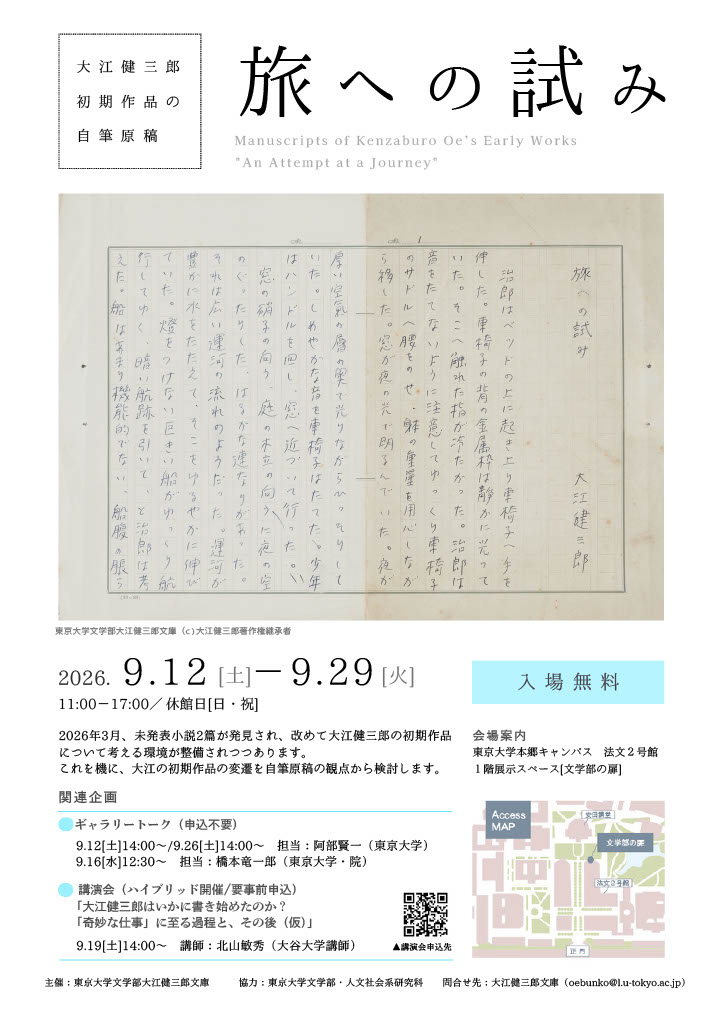 大江健三郎
初期作品の
自筆原稿
旅への試み
Manuscripts of Kenzaburo Oe's Early Works
"An Attempt at a Journey"
旅への試み
大江健三郎
治郎はベッドの上に起き上り車椅子へ手を
伸した。車椅子の背の金属枠は静かに光って
いた。そこへ触れた指が冷たかった。治郎は
音をたてないように注意してゆっくり車椅子
のサドルへ腰をのせ、躰の重量を用心しなが
ら移した。窓が夜の光で明るんでいた。夜が
厚い空氣の層の奥で光りながらひっそりして
いた。しめやかな音を車椅子はたてた。少年
はハンドルを回し、窓へ近づいて行った。
窓の硝子の向う、庭の木立の向うに夜の空
のぐったりした、はるかな連なりがあった。
それは広い運河の流れのようだった。運河が
豊かに水をたたえて、そこをゆるやかに伸び
ていた。燈をつけない巨きい船がゆっくり航
行してゆく、暗い航跡を引いて、と治郎は考
えた。船はあまり機能的でない、船腹の脹ら
東京大学文学部大江健三郎文庫（c）大江健三郎著作権継承者
2026. 9.12 [土]－9.29 [火]
11:00－17:00／休館日[日・祝]
入場無料
2026年3月、未発表小説2篇が発見され、改めて大江健三郎の初期作品
について考える環境が整備されつつあります。
これを機に、大江の初期作品の変遷を自筆原稿の観点から検討します。
会場案内
東京大学本郷キャンパス　法文２号館
１階展示スペース[文学部の扉]
関連企画
ギャラリートーク（申込不要）
9.12[土]14:00～/9.26[土]14:00～　担当：阿部賢一（東京大学）
9.16[水]12:30～　担当：橋本竜一郎（東京大学・院）
講演会（ハイブリッド開催/要事前申込）
「大江健三郎はいかに書き始めたのか？
「奇妙な仕事」に至る過程と、その後（仮）」
9.19[土]14:00～　講師：北山敏秀（大谷大学講師）
▲講演会申込先
Access
MAP
安田講堂
文学部の扉
法文２号館
正門
主催：東京大学文学部大江健三郎文庫　協力：東京大学文学部・人文社会系研究科　問合せ先：大江健三郎文庫（oebunko@l.u-tokyo.ac.jp）